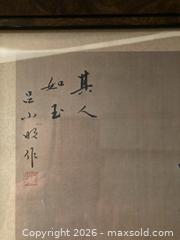 其人
如玉
呂小明作
Copyright 2026 - MaxSold.com